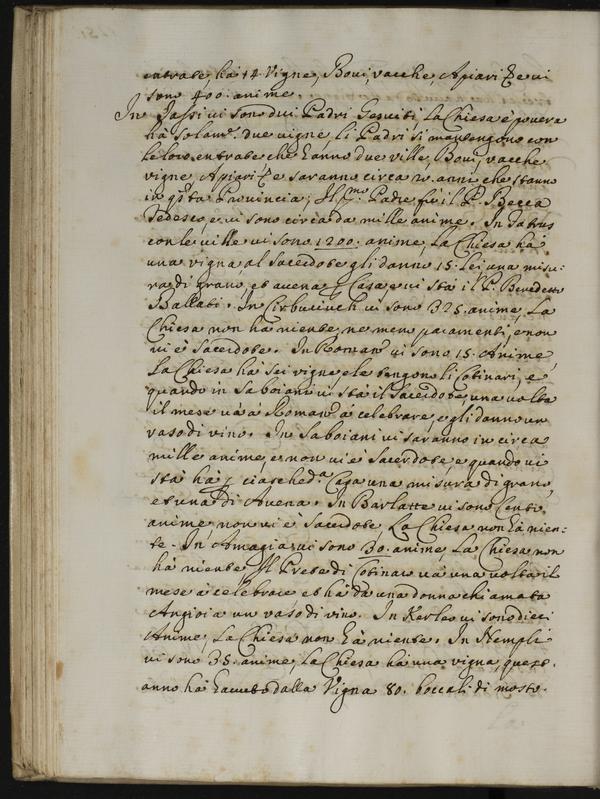 entrate, hà 14. Vigne, Boui, vacche, Apiari &c. e ui
sono 400. anime.
In Jassi ui sono dui Padri Gesuiti, La Chiesa è pouera
hà solam.te due uigne, li Padri si mantengono con
le loro entrate che hanno due ville, Boui, vacche
vigne Apiari &c. e saranno circa 20. anni che, stanno
in q.sta Prouincia, Il p.mo Padre fù il P. Becca
Tedesco, e ui sono circa da mille anime. In Jabus
con le uille ui sono 1200. anime, La Chiesa hà
una vigna, al Sacerdote gli danno 15. Lei, una misu:
ra di grano, et auena p Casa e ui stà il P. Benedetto
Ballati. In Cirbuciuch ui sono 325. anime, La
Chiesa non hà niente, ne men paramenti, e non
ui è Sacerdote. In Roman ui sono 15. Anime,
La Chiesa hà sei vigne e le tengono li Cotinari, e
quando in Saboiani ui stà il Sacerdote, una volta
il mese uà à Roman à celebrare, e gli danno un
vaso di vino. In Saboiani ui saranno in circa
mille anime, e non ui è Sacerdote e quando ui
stà hà p ciasched.a Casa una misura di grano,
et una di Auena. In Barlatte ui sono Cento
anime, non ui è Sacerdote, La Chiesa non hà nien:
te. In Amagia ui sono 30. anime, La Chiesa non
hà niente Il Prete di Cotinar uà una volta il
mese à celebrare et hà da una donna chiamata
Angioia un vaso di vino. In Kerleo ui sono dieci
Anime, La Chiesa non hà niente. In Nempli
ui sono 35. anime, La Chiesa hà una vigna, quest.
anno hà hauuto dalla Vigna 80. boccali di mosto.
La